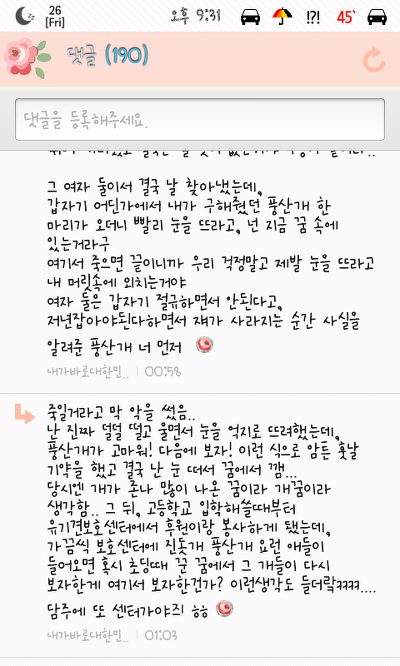 26
[Fri]
오후 9:31
!?!
45°
댓글 (190)
댓글을 등록해주세요.
그 여자 둘이서 결국 날 찾아냈는데,
갑자기 어딘가에서 내가 구해줬던 풍산개 한
마리가 오더니 빨리 눈을 뜨라고, 넌 지금 꿈 속에
있는거라구
여기서 죽으면 끝이니까 우리 걱정말고 제발 눈을 뜨라고
내 머릿속에 외치는거야
여자 둘은 갑자기 절규하면서 안된다고,
저년잡아야된다하면서 쟤가 사라지는 순간 사실을
알려준 풍산개 너 먼저
내가바로대한민..
00:58
죽일거라고 막 악을 썼음..
난 진짜 덜덜 떨고 울면서 눈을 억지로 뜨려했는데,
풍산개가 고마워! 다음에 보자! 이런 식으로 암튼 훗날
기약을 했고 결국 난 눈 떠서 꿈에서 깸...
당시엔 개가 존나 많이 나온 꿈이라 개꿈이라
생각함.. 그 뒤, 고등학교 입학해쓸때부터
유기견보호센터에서 후원이랑 봉사하게 됐는데,
가끔씩 보호센터에 진돗개 풍산개 요런 애들이
들어오면 혹시 초딩때 꾼 꿈에서 그 개들이 다시
보자한게 여기서 보자한건가? 이런생각도 들더랔ㅋㅋㅋ....
담주에 또 센터가야즤 ㅎㅎ
내가바로대한민..
01:03